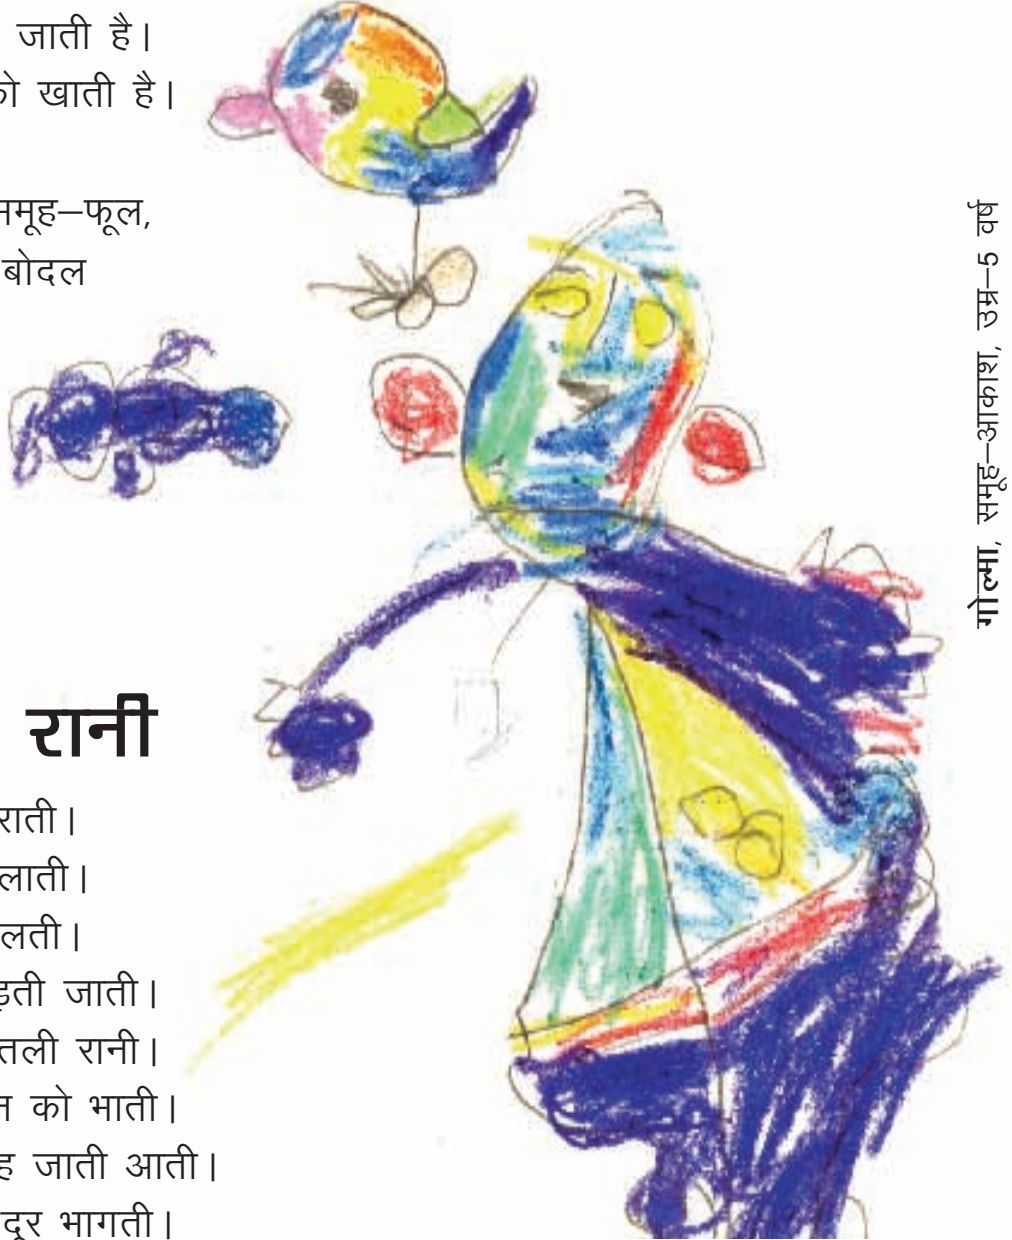 जाती है।
को खाती है।
समूह–फूल,
बोदल
रानी
राती।
लाती।
लती।
ड़ती जाती।
तली रानी।
न को भाती।
ह जाती आती।
दूर भागती।
गोल्मा, समूह–आकाश, उम्र–5 वर्ष